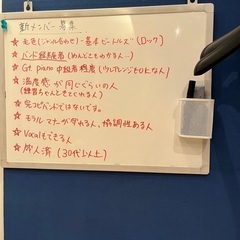 新メンバー募集
☆ 毛色(ジャンル合わせ)-基本ビートルズ (ロック)
☆ バンド経験者 (めんどくさのかるん…)
☆ Gt. piano 中級者程度 (ツレアレンジもOKな人)
☆ 温度感が同じぐらいの人
(練習ちゃんとをしてくれる人)
☆ 完コピバンドではないです。
☆ モラル マナーが守れる、協調性ある人
☆ Vocalもできる人
☆ 成人済 (30代以上)